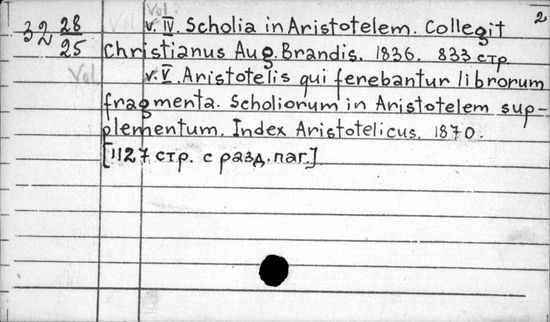 Vol 2
32 28/25 v. IV. Scholia in Aristotelem. Collegit
Christianus Aug. Brandis. 1836. 833 стр.
Vol v. V. Aristotelis qui ferebantur librorum
fragmenta. Scholiorum in Aristotelem sup-
plementum. Index Aristotelicus. 1870.
[1127 стр. с разд. паг.]